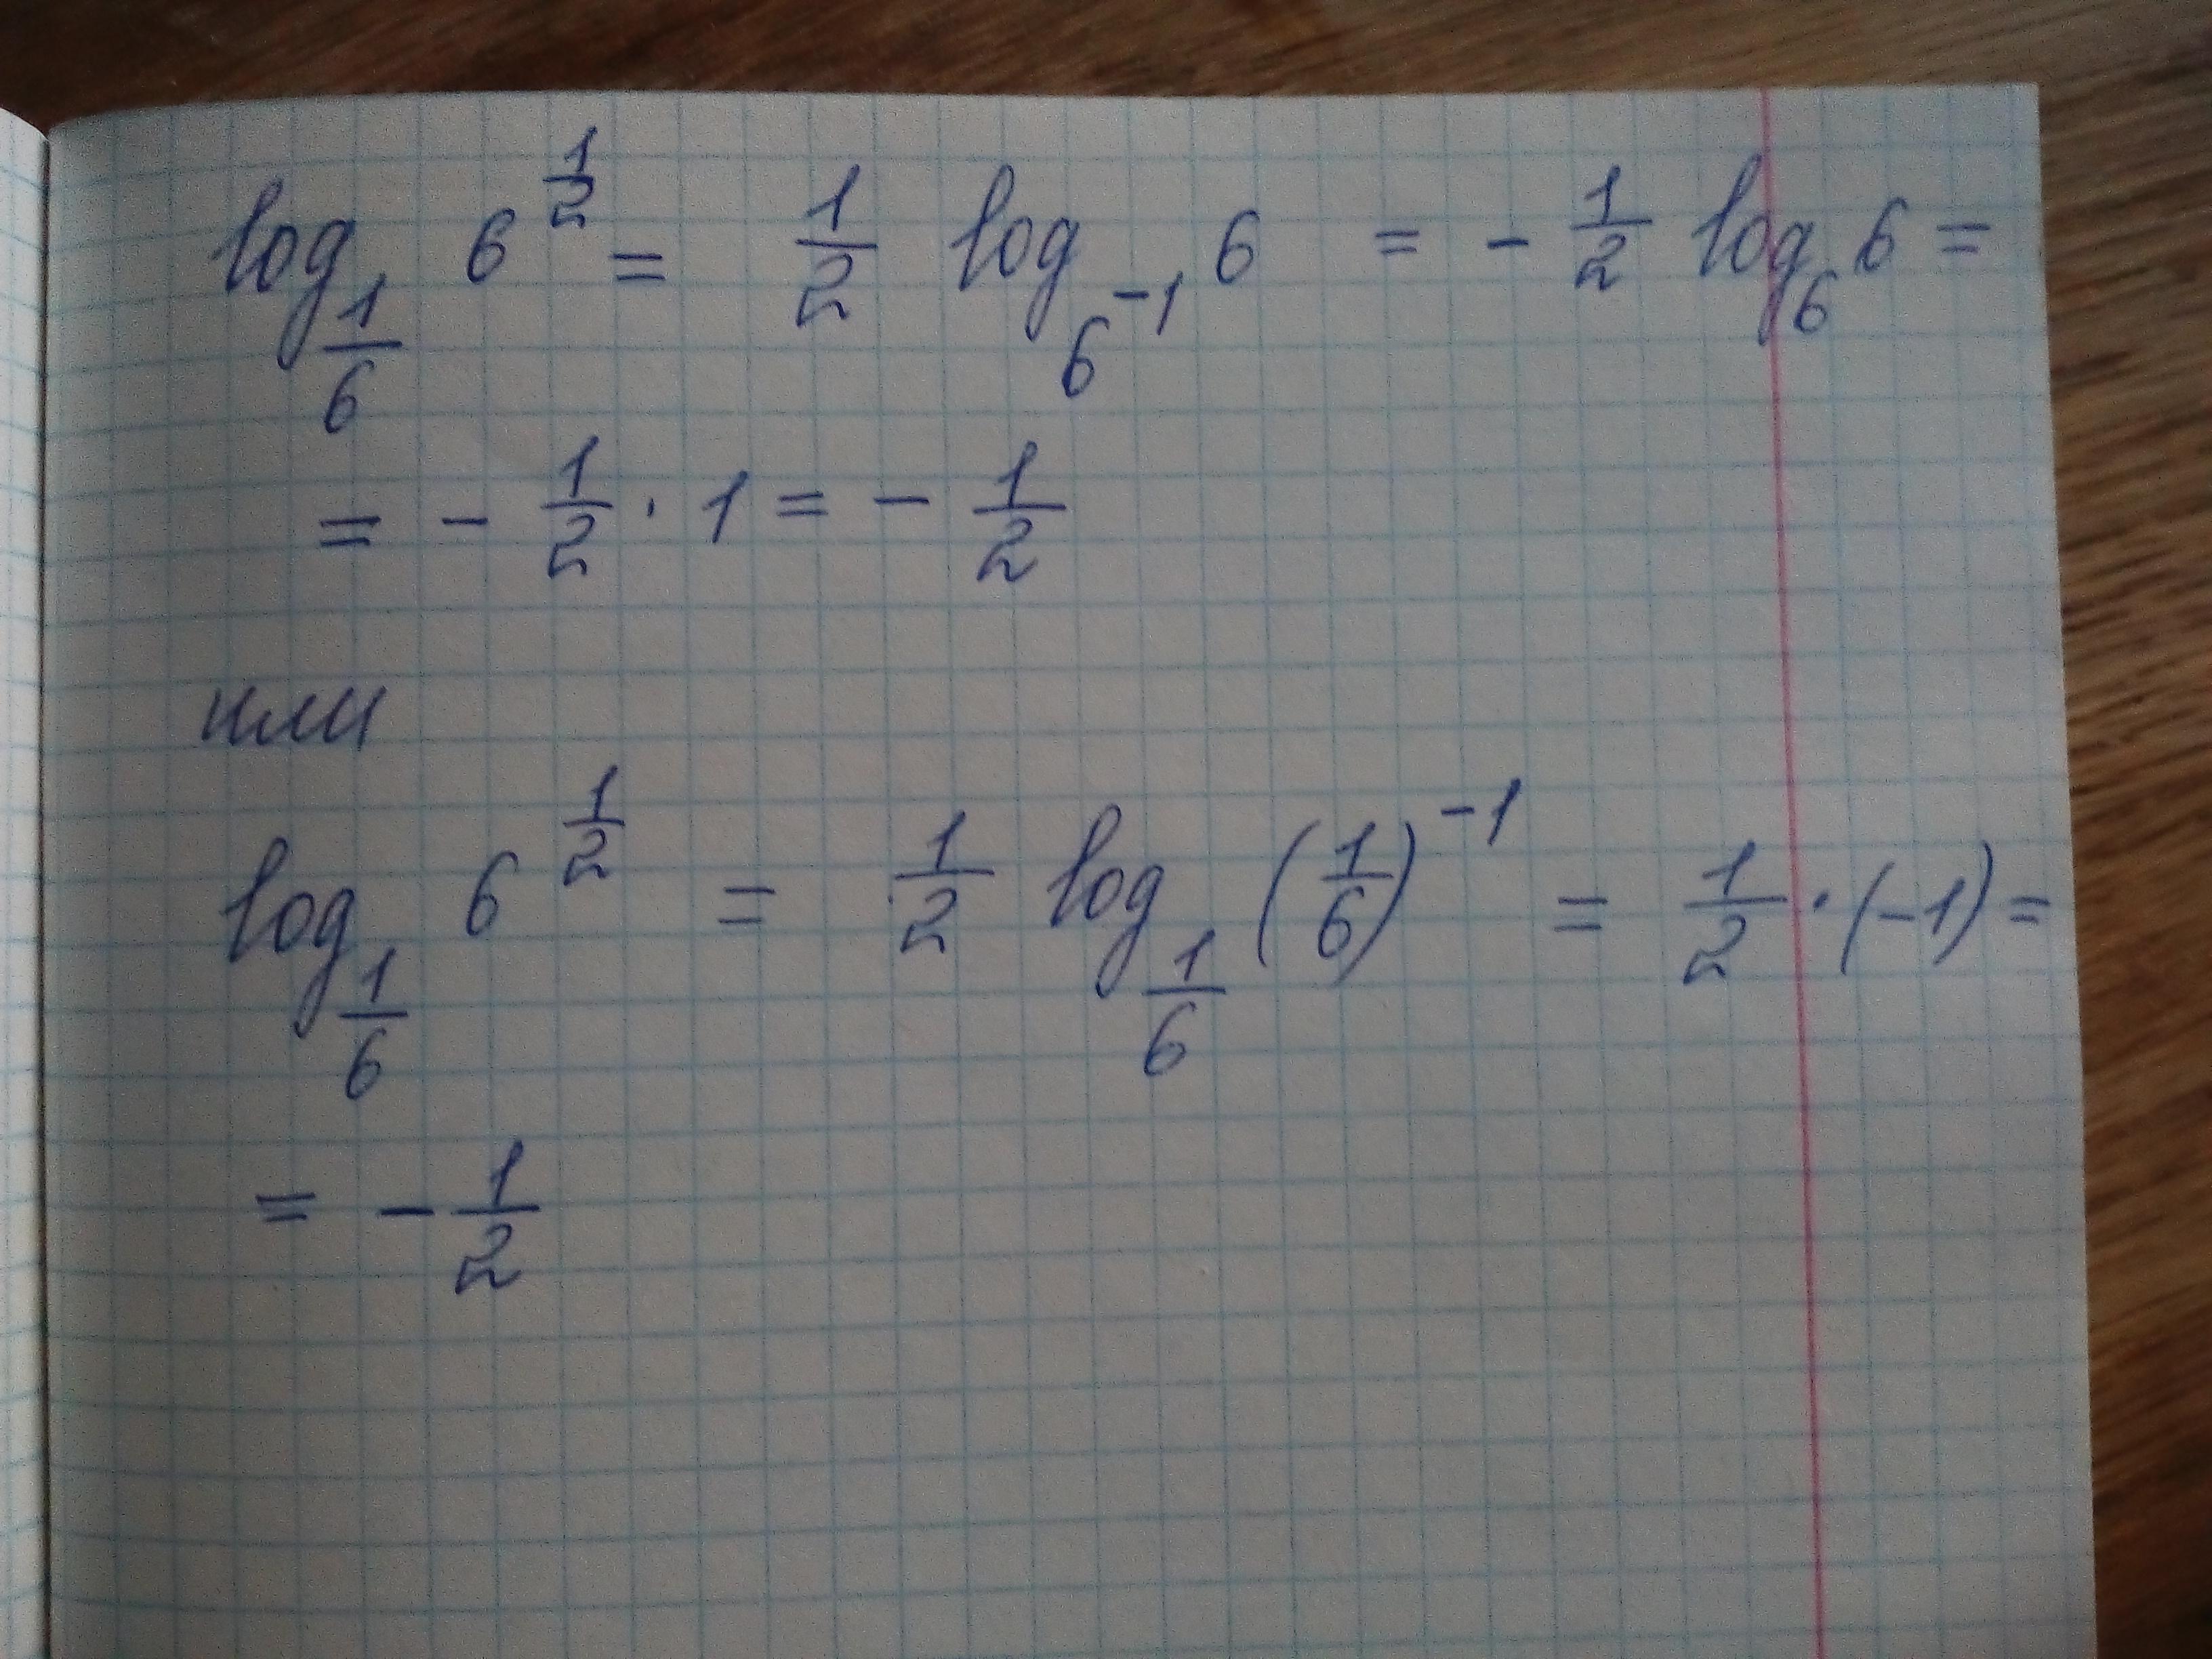 log_{1/6} 6^{1/2} = 1/2 log_{6^{-1}} 6 = - 1/2 log_6 6 =
= - 1/2 · 1 = - 1/2
или
log_{1/6} 6^{1/2} = 1/2 log_{1/6} (1/6)^{-1} = 1/2 · (-1) =
= - 1/2